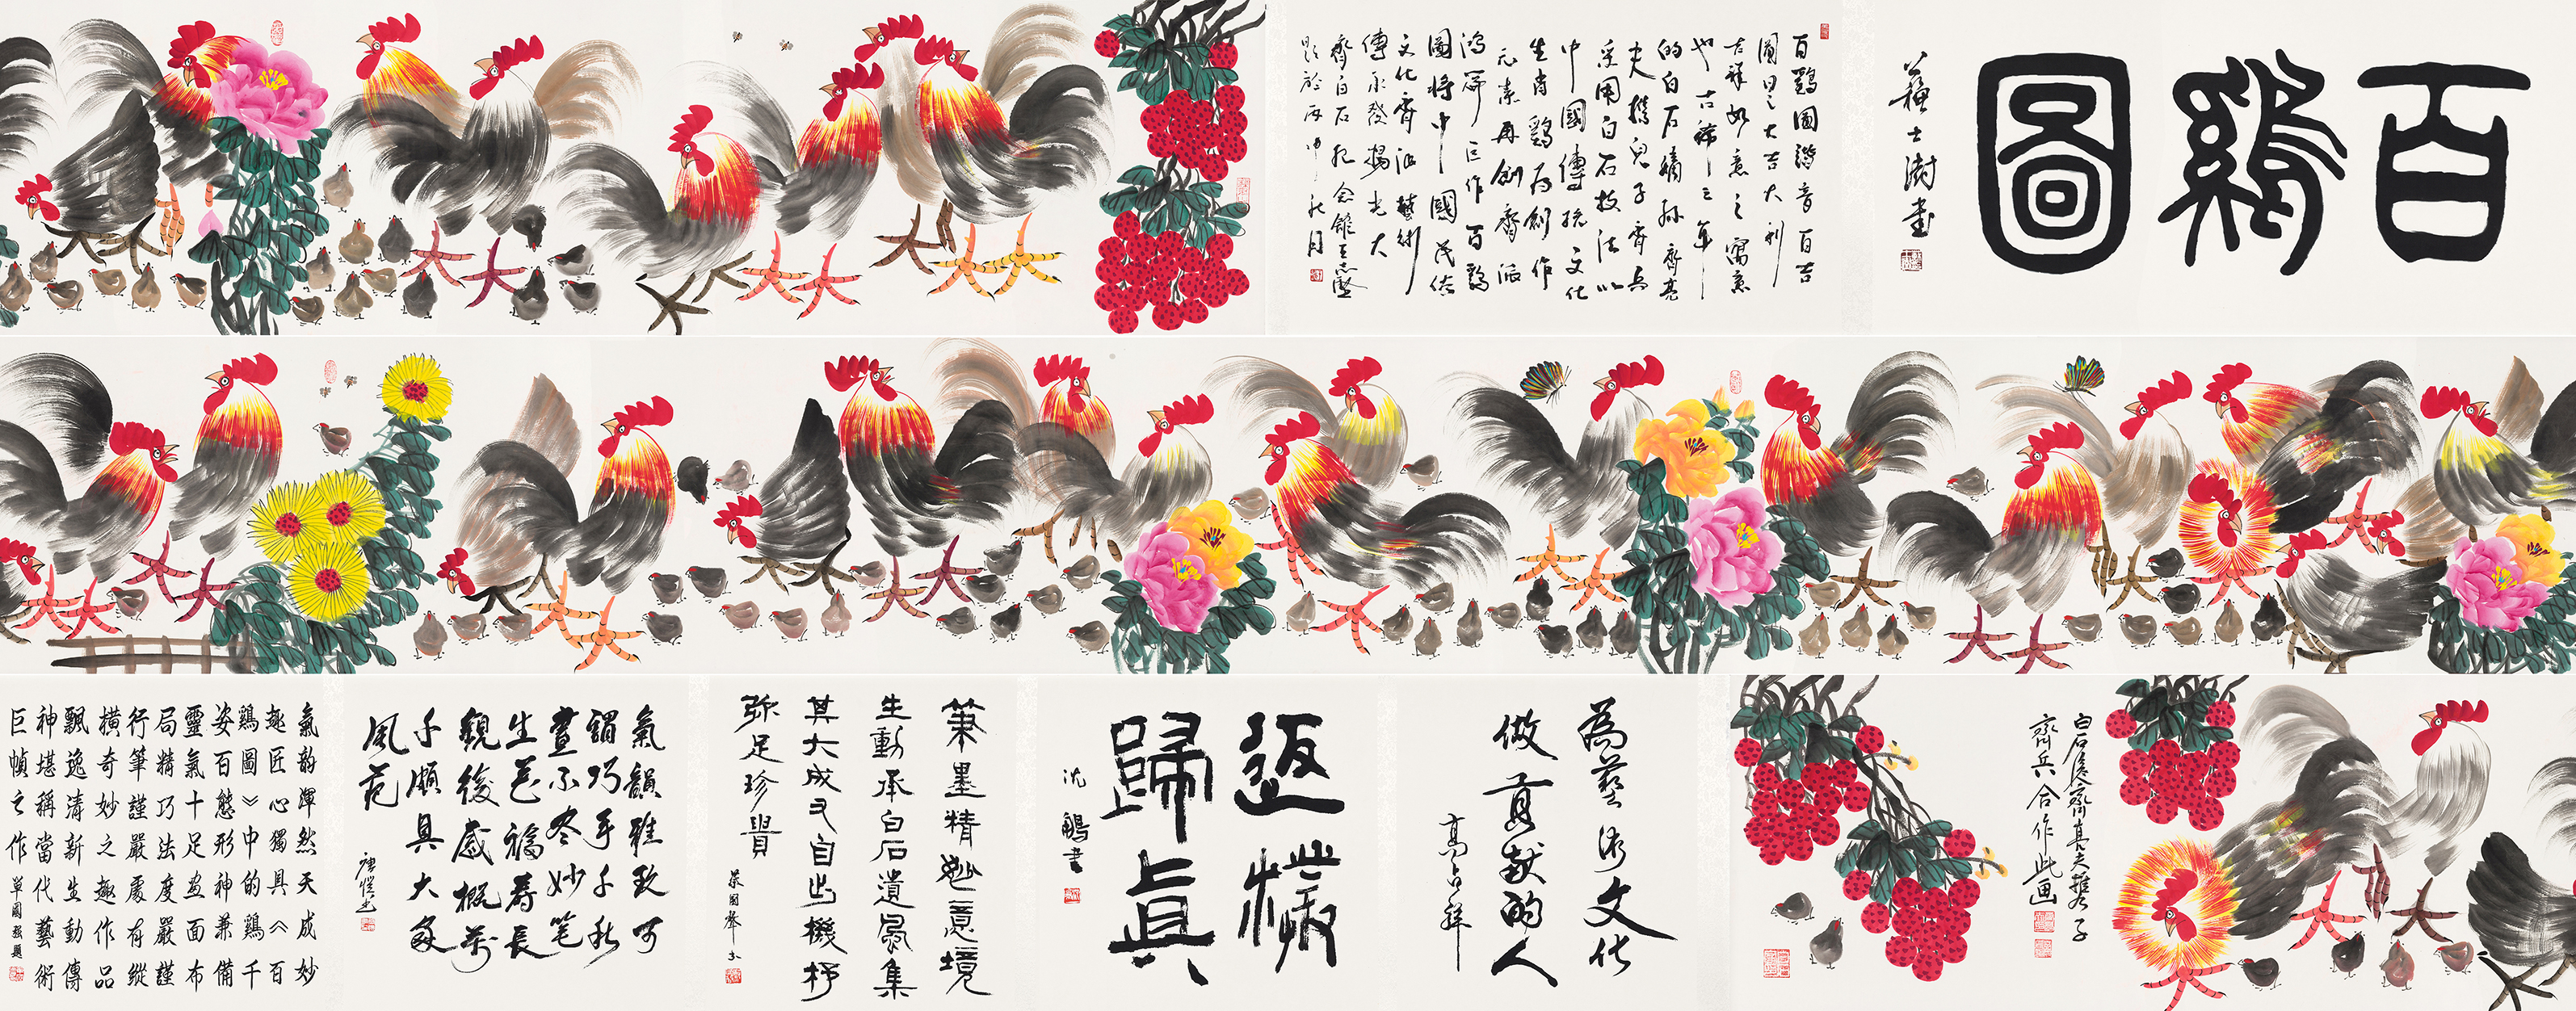 百鷄圖
蘇士澍書
百鷄圖諧音百吉
圖日之大吉大利
吉祥如意之寓意
也古稀之年
的白石嫡孫齊亮
夫携兒子齊兵
采用白石技法以
中國傳統文化
生肖鷄爲創作
元素再創齊派
鴻篇巨作百鷄
圖將中國民俗
文化齊派藝術
傳承發揚光大
齊白石紀念館
題於丙申秋月
白石後齊喜夫携子
齊兵合作此画
為藝術文化
做貢献的人
高占祥
返樸
歸真
沈鵬書
筆墨精妙意境
生動承白石遺風集
其大成又自出機杼
弥足珍貴
氣韻雅致可
謂巧手千秋
畫不尽妙笔
生花福壽長
觀後感概萬
千頗具大家
風范
唐愷書
氣韵渾然天成妙
趣匠心獨具《百
鷄圖》中的鷄千
姿百態形神兼備
靈氣十足画面布
局精巧法度嚴謹
行筆謹嚴處有縱
橫奇妙之趣作品
飄逸清新生動傳
神堪稱當代藝術
巨幀之作單國强題